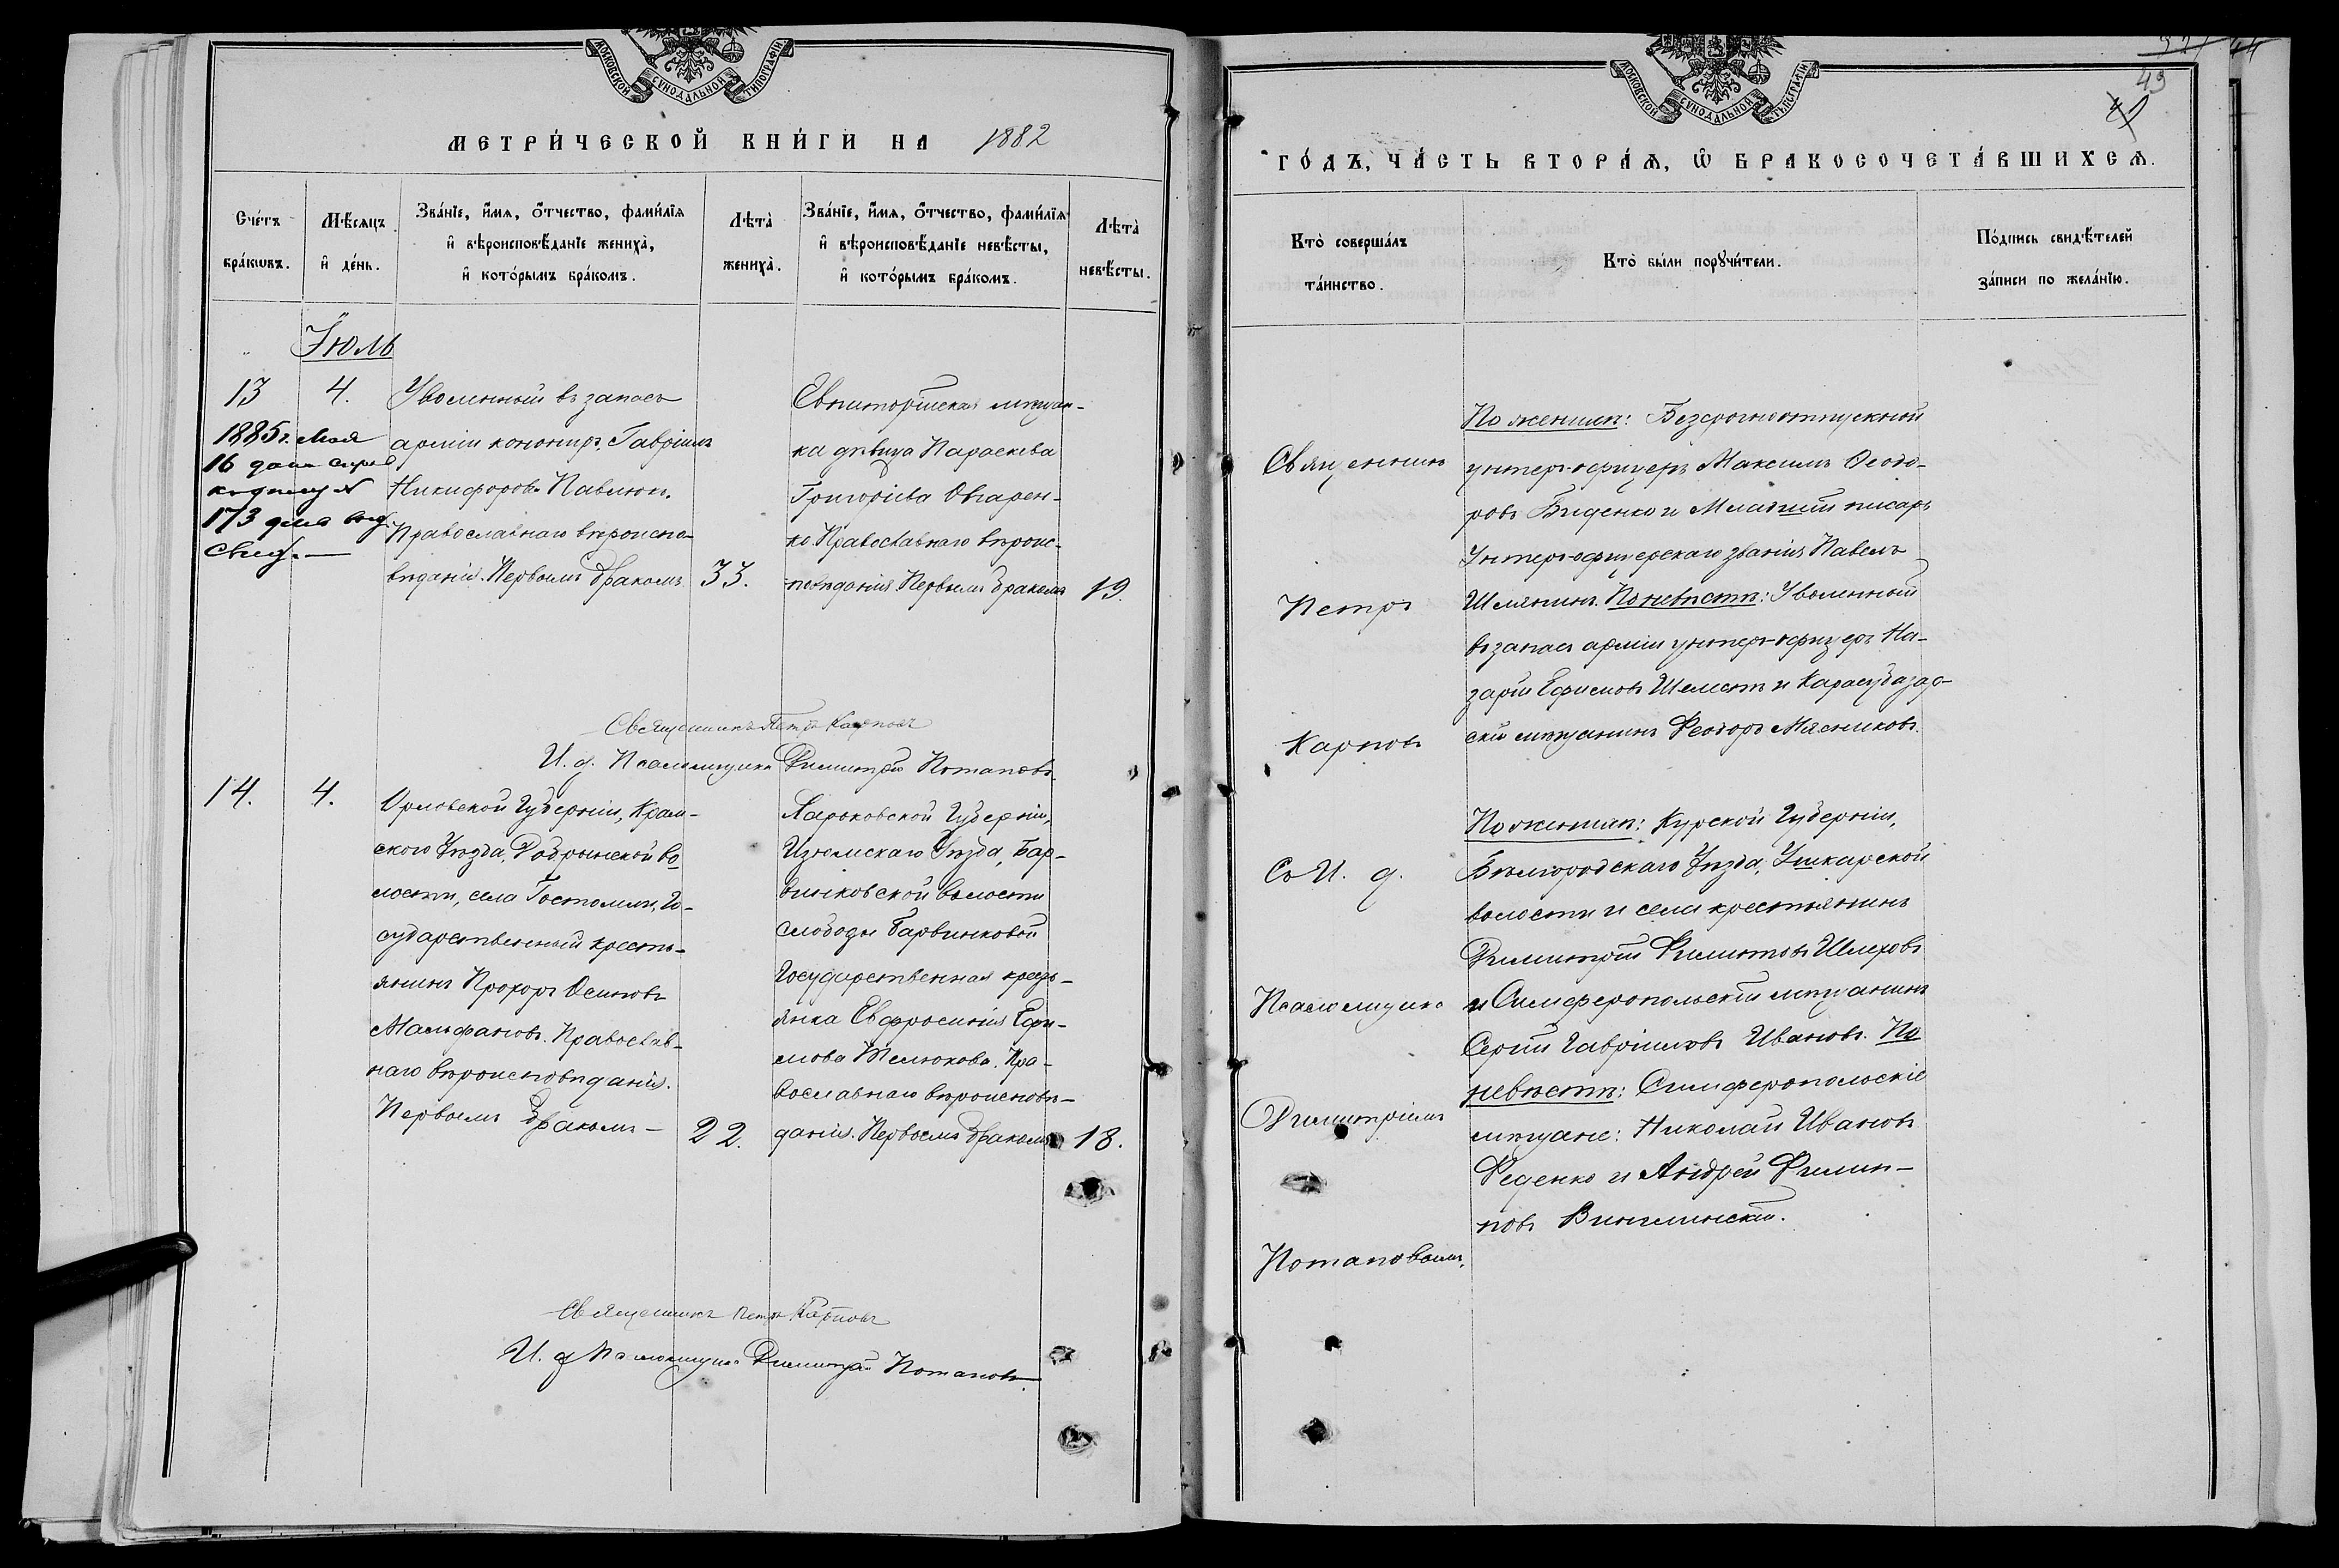 МОСКОВСКОЙ СѴНОДАЛЬНОЙ ТИПОГРАФІИ
МЕТРИ́ЧЕСКОЙ КНИ́ГИ НА 1882
Сче́тъ бра́кѡвъ.
Мѣ́сяцъ и де́нь.
Зва́нїе, и́мя, о́тчество, фами́лїя
и вѣроисповѣ́данїе жениха̀,
и кото́рымъ бра́комъ.
Лѣта̀ жениха̀.
Зва́нїе, и́мя, о́тчество, фами́лїя
и вѣроисповѣ́данїе невѣ́сты,
и кото́рымъ бра́комъ.
Лѣта̀ невѣ́сты.
Іюль
13
4.
1885 г. Мая
16 дня
173
Уволенный въ запасъ
арміи канониръ, Гавріилъ
Никифоровъ Павлюк.
Православнаго вѣроиспо-
вѣданія. Первымъ бракомъ
33.
Евпаторійская мѣщан-
ка дѣвица Параскева
Григоріева Овчарен-
ко. Православнаго вѣроис-
повѣданія Первымъ бракомъ
19.
Священникъ Петръ Карповъ
И. д. Псаломщика Димитрій Потаповъ.
14.
4.
Орловской Губерніи, Кром-
ского Уѣзда, Добрынской во
лости, села Гостомли, Го-
сударственный кресть-
янинъ Прохоръ Осиповъ
Малфановъ. Православ-
наго вѣроисповѣданія.
Первымъ бракомъ —
22.
Харьковской Губерніи,
Изюмскаго Уѣзда, Бар-
винковской волости
слободы Барвинковой
Государственная кресть-
янка Евфросинія Ефи-
мова Телюкова. Пра-
вославнаго вѣроисповѣ-
данія. Первымъ бракомъ
18.
Священникъ Петръ Карповъ
И. д. Псаломщика Димитрій Потаповъ.
МОСКОВСКОЙ СѴНОДАЛЬНОЙ ТИПОГРАФІИ
43
ГО́ДЪ, ЧА́СТЬ ВТОРА́Ѧ, Ѡ БРАКОСОЧЕТА́ВШИХСѦ.
Кто̀ соверша́лъ
та́инство.
Кто̀ бы́ли порꙋчи́тели.
По́дпись свидѣ́телей
за́писи по жела́нїю.
Священникъ
Петръ
Карповъ
По женихѣ: Безсрочноотпускной
унтеръ-офицеръ Максимъ Ѳеодо-
ровъ Биденко и Младшій писарь
Унтеръ-офицерскаго званія Павелъ
Шлянинъ. По невѣстѣ: Уволенный
въ запасъ арміи унтеръ-офицеръ На-
зарій Ефимовъ Шелестъ и Карасубазар-
скій мѣщанинъ Феодоръ Мясниковъ.
Съ И. д.
Псаломщика
Димитріемъ
Потаповымъ.
По женихѣ: Курской Губерніи,
Бѣлгородскаго Уѣзда,
волости и села крестьянинъ
Димитрій Филиповъ Шлеховъ
и Симферопольскій мѣщанинъ
Сергій Гавріиловъ Ивановъ. По
невѣстѣ: Симферопольскіе
мѣщане: Николай Ивановъ
Феденко и Андрей Филип-
повъ Винглинскій.